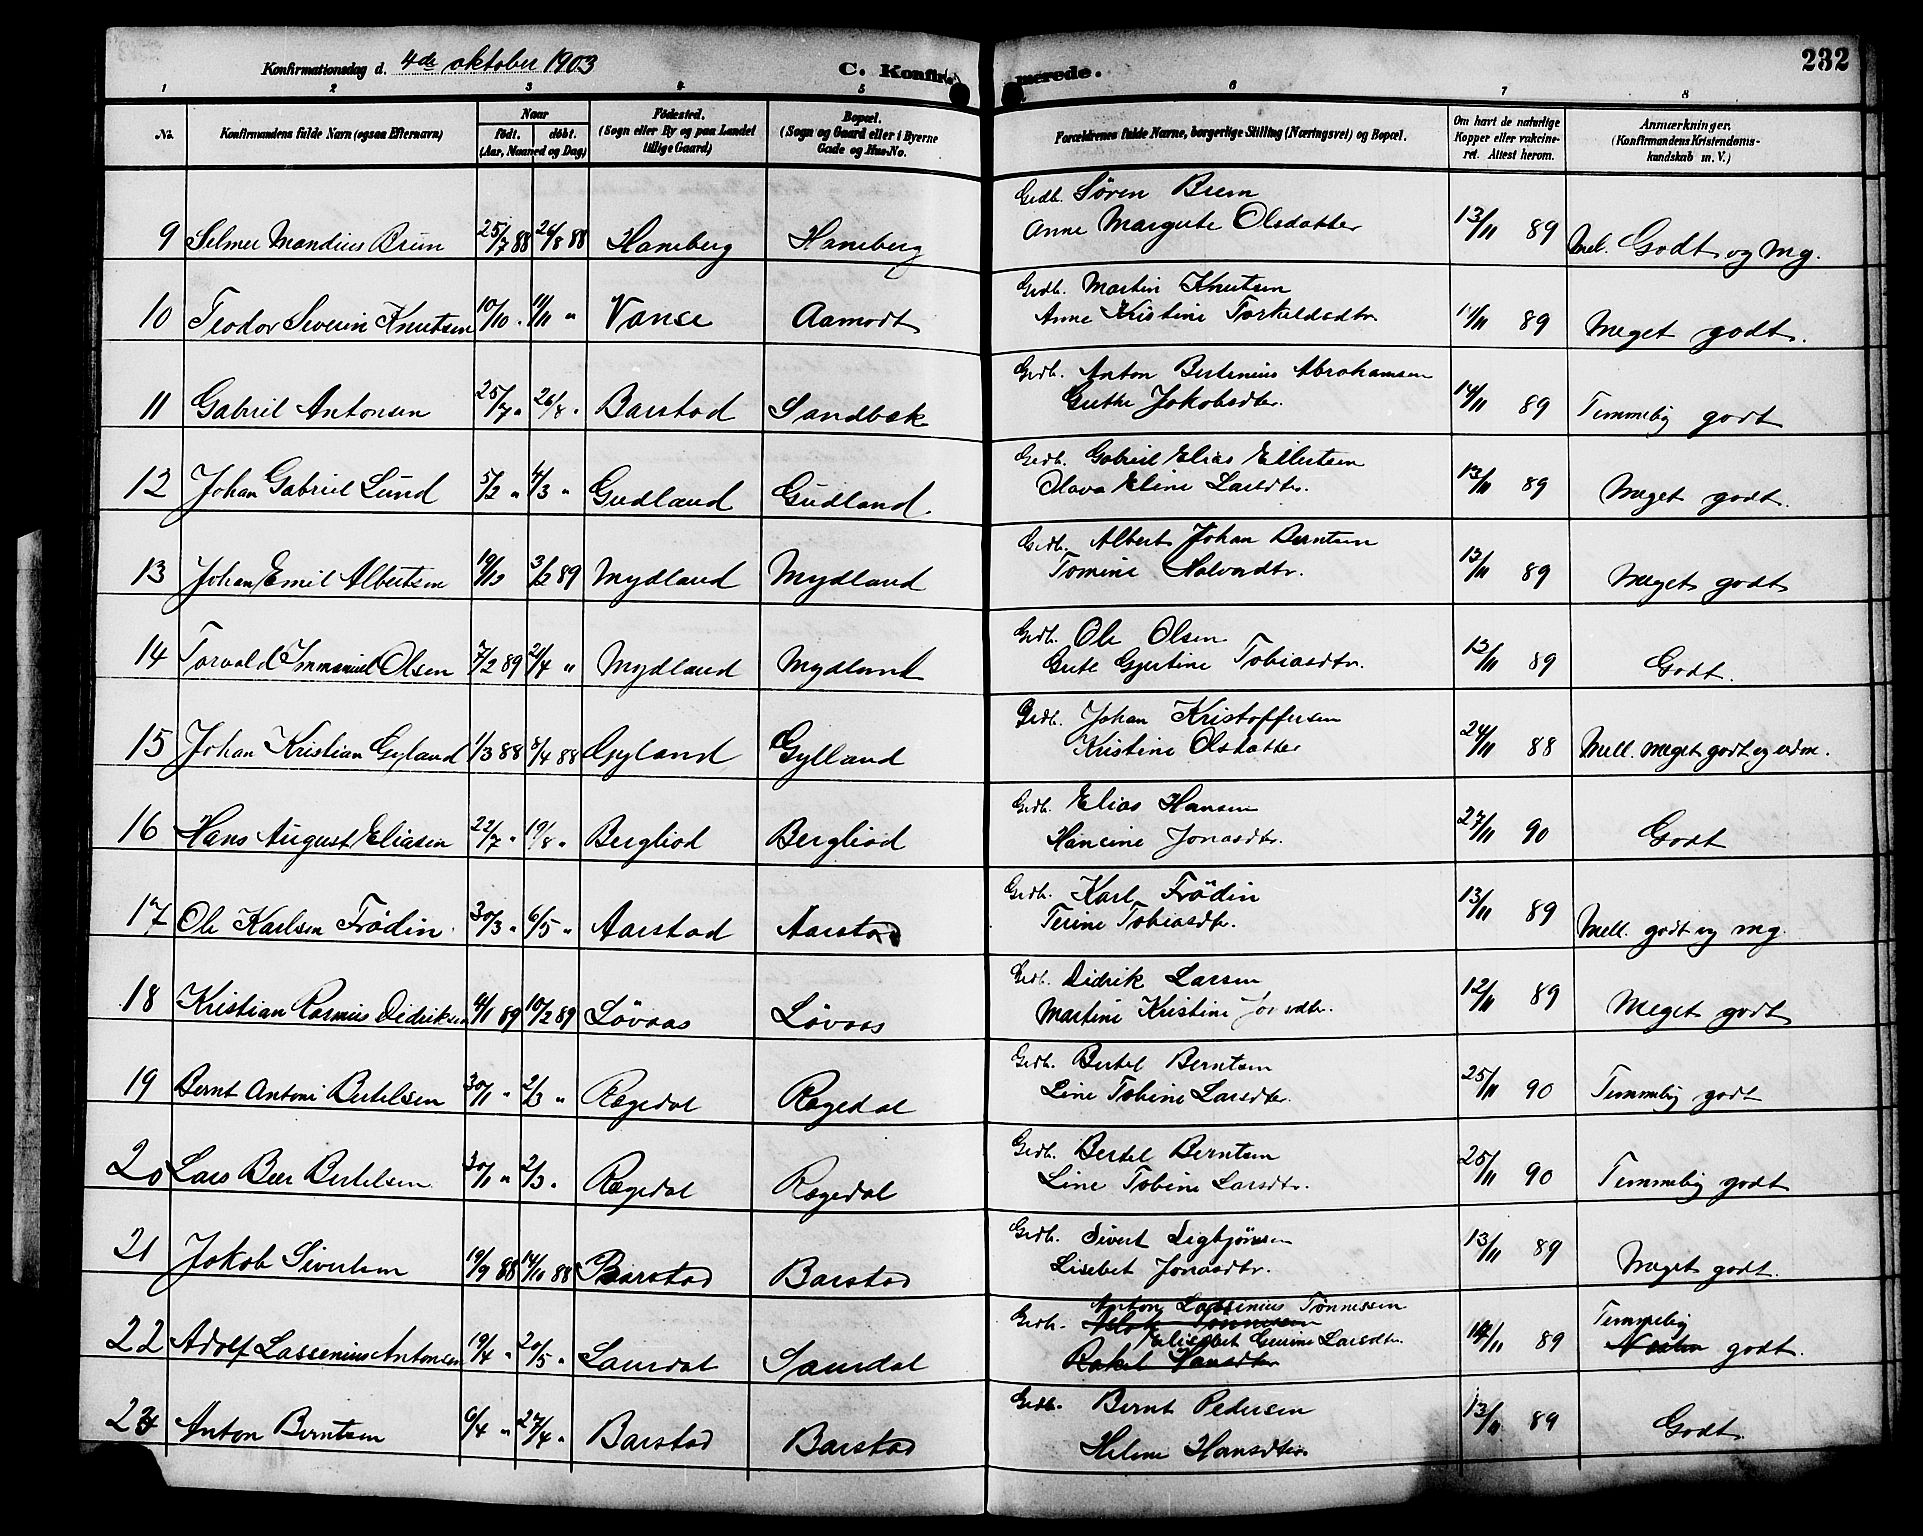 Konfirmationsdag d. 4de oktober 1903 C. Konfirmerede. 232
1 2 3 4 5 6 7 8
No. Konfirmandens fulde Navn (ogsaa Efternavn) Naar født. døbt. (Aar, Maaned og Dag) Fødested. (Sogn eller By og paa Landet tillige Gaard) Bopæl. (Sogn og Gaard eller i Byerne Gade og Hus-No. Forældrenes fulde Navne, borgerlige Stilling (Næringsvei) og Bopæl. Om havt de naturlige Kopper eller vakcineret. Attest herom. Anmærkninger. (Konfirmandens Kristendomskundskab m. V.)
Grdb. Søren Brun
9 Selmer Mandius Brun 25/7 88 26/8 88 Haneberg Haneberg Anne Margrete Olsdatter 13/11 89 Mel. Godt og Mg.
Grdb. Martin Knutsen
10 Teodor Severin Knutsen 10/10 " 11/11 " Vanse Aamodt Anne Kristine Torkeldsdtr. 11/11 89 Meget godt.
Grdb. Anton Bertinius Abrahamsen
11 Gabriel Antonsen 25/7 " 26/8 " Barstad Sandbæk Grethe Jokobsdtr. 14/11 89 Temmelig godt
Grdb. Gabriel Elias Ellertsen
12 Johan Gabriel Lund 5/2 " 4/3 " Gudland Gudland. Olava Eline Larsdtr. 13/11 89 Meget godt.
Grdb. Albert Johan Berntsen
13 Johan Emil Albertsen 19/12 3/2 89 Mydland Mydland Tomine Halvordtr. 13/11 89 Meget godt
Grdb. Ole Olsen
14 Torvald Immanuel Olsen 7/2 89 21/4 " Mydland Mydland Grete Gjertine Tobiasdtr. 13/11 89 Godt.
Grdb. Johan Kristoffersen
15 Johan Kristian Gyland 1/3 88 8/4 88 Gyland Gylland Kristine Olsdatter 24/11 88 Mell. meget godt og udm.
Grdb. Elias Hansen
16 Hans August Eliasen 22/7 " 19/8 " Bergliod Bergliod Hancine Jonasdtr. 27/11 90 Godt
Grdb. Karl Frödin
17 Ole Karlsen Frödin 30/3 " 6/5 " Aarstad Aarstad Terine Tobiasdtr. 13/11 89 Mell. godt og mg.
Grdb. Didrik Larsen
18 Kristian Rasmus Didriksen 4/1 89 10/2 89 Løvaas Løvaas Martine Kristine 12/11 89 Meget godt
Grdb. Bertel Berntsen
19 Bernt Antoni Bertelsen 30/1 " 2/3 " Rægedal Rægedal Line Tobine Larsdtr. 25/11 90 Temmelig godt
Grdb. Bertel Berntsen
20 Lars Beer Bertelsen 30/1 " 2/3 " Rægedal Rægedal Line Tobine Larsdtr. 25/11 90 Temmelig godt
Grdb. Sivert Sigbjørnsen
21 Jokob Sivertsen 19/9 88 14/10 88 Barstad Barstad Lisebet Jonasdtr. 13/11 89 Meget godt.
Anton Lassenius Tønnessen
Grdb. Aslak Tønnessen Temmelig
22 Adolf Lassenius Antonsen 19/4 " 20/5 " Samdal Samdal Elisebet Gurine Larsdtr. 14/11 89 Næsten godt.
Rakel Larsdtr
Grdb. Bernt Pedersen
23 Anton Berntsen 6/4 " 27/4 " Barstad Barstad Helene Hansdtr. 13/11 89 Godt.